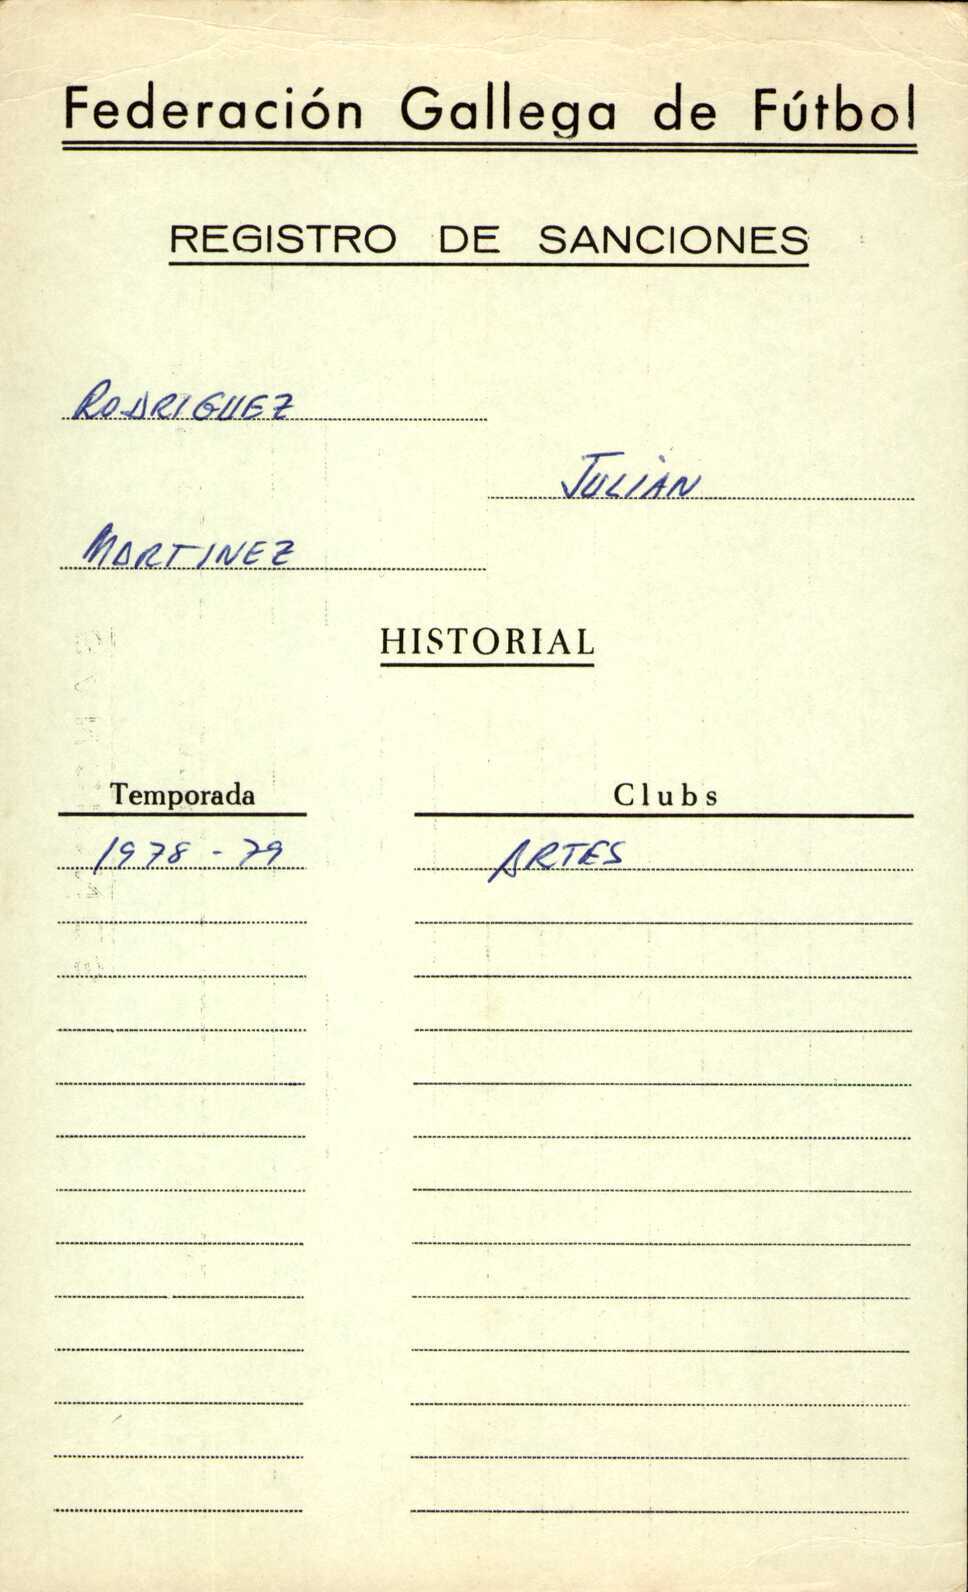 Federación Gallega de Fútbol
REGISTRO DE SANCIONES
RODRIGUEZ
JULIÁN
MARTINEZ
HISTORIAL
Temporada Clubs
1978-79 ARTES